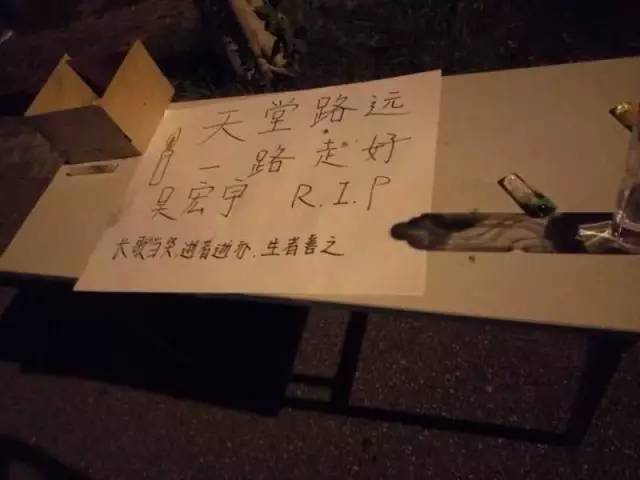 天堂路远
一路走好
吴宏宇 R.I.P
长歌当哭,逝者逝亦,生者善之